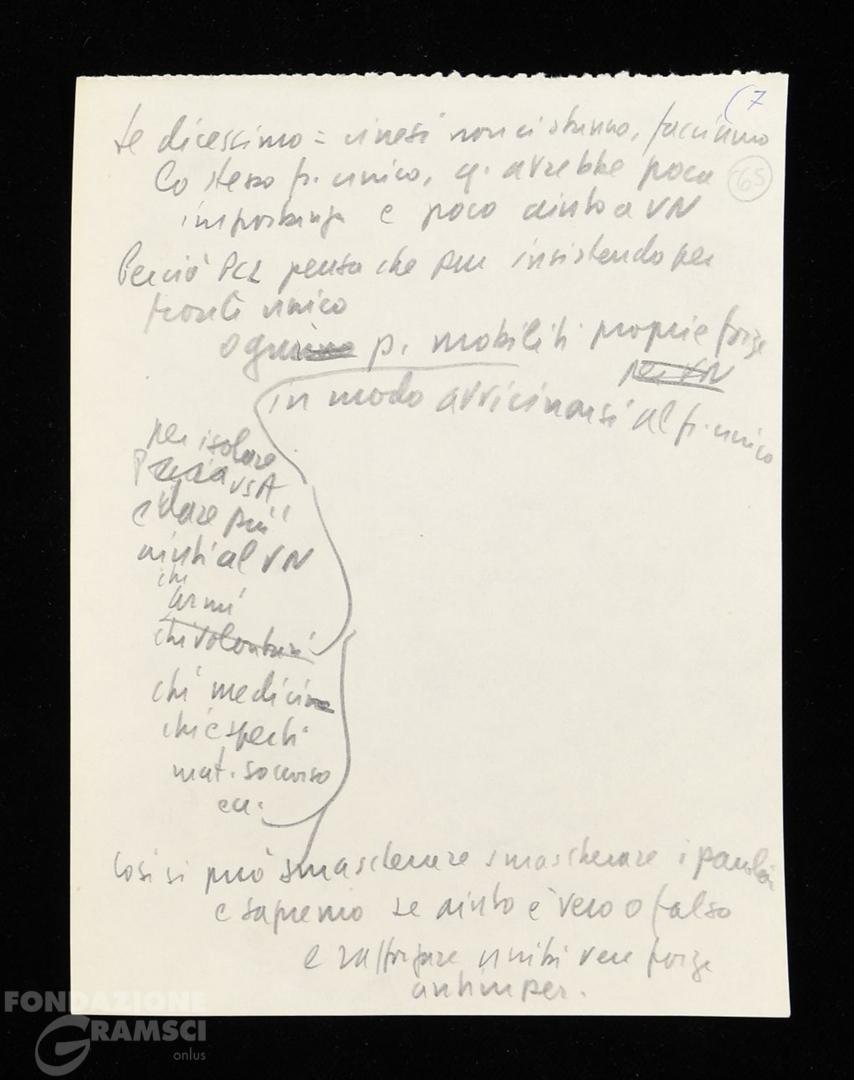 (7
65
se dicessimo = cinesi non ci stanno, facciamo
lo stesso fr. unico, q. avrebbe poca
importanza e poco aiuto a VN
Perciò PCL pensa che pur insistendo per
fronte unico
ogni p. mobiliti proprie forze
per VN
in modo avvicinarsi al fr. unico
per isolare
USA
e dare più
aiuti al VN
chi
armi
chi volontari
chi medici
chi esperti
mat. soccorso
ecc.
così si può smascherare smascherare i parolai
e sapremo se aiuto è vero o falso
e rafforzare unità vere forze
antimper.
FONDAZIONE
GRAMSCI
onlus